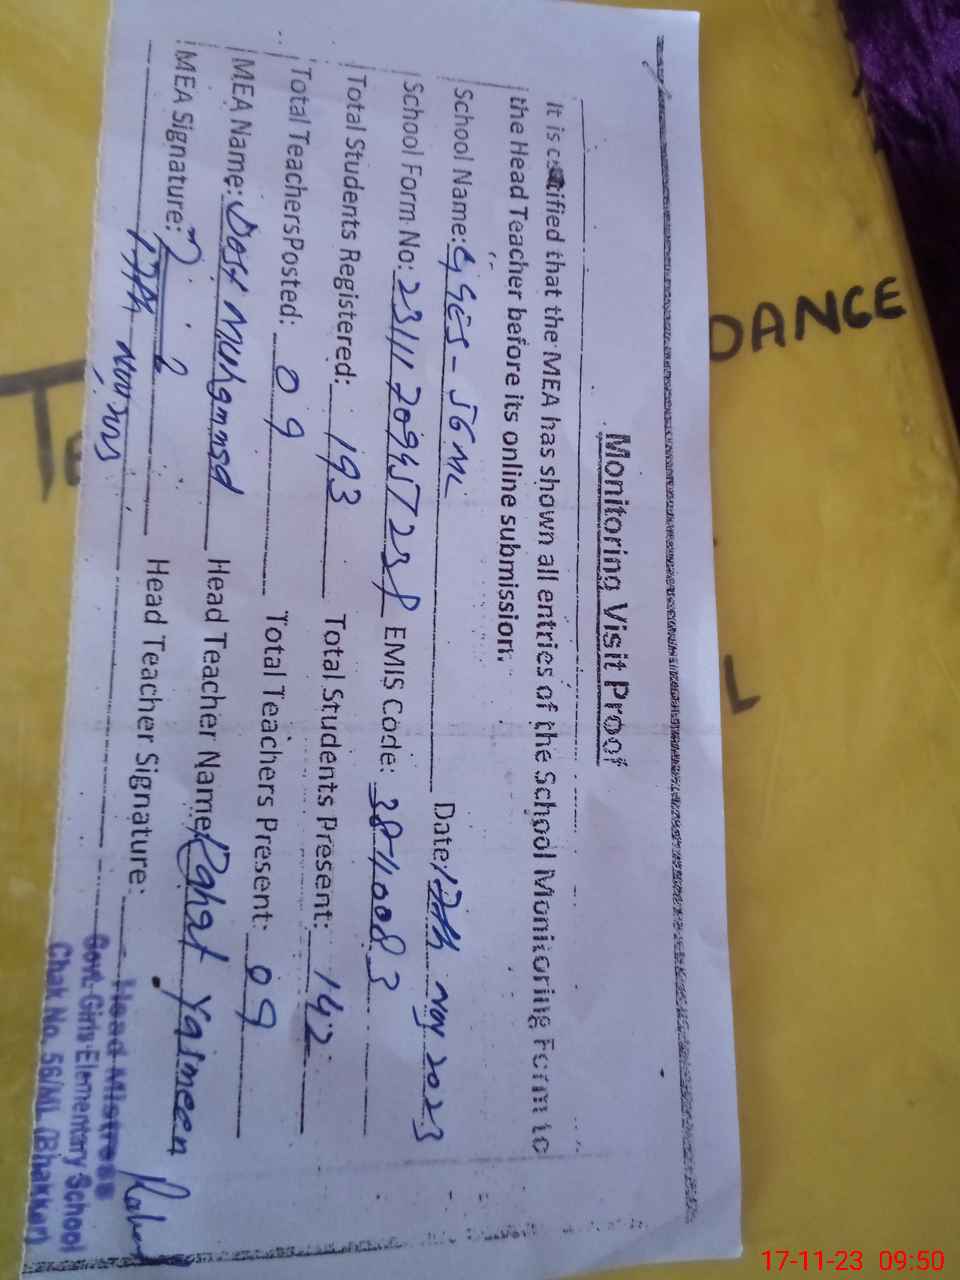 Monitoring Visit Proof
It is certified that the MEA has shown all entries of the School Monitoring Form to
the Head Teacher before its online submission.
School Name: GGES - 56 ML Date: 17th Nov 2023
School Form No: EMIS Code: 38110083
Total Students Registered: 193 Total Students Present: 142
Total Teachers Posted: 09 Total Teachers Present: 09
MEA Name: Dost Muhammad Head Teacher Name: Rahat Yasmeen
MEA Signature: Head Teacher Signature:
17th Nov
Head Mistress
Govt. Girls Elementary School
Chak No. 56/ML (Bhakkar)
DANCE
TE
L
17-11-23 09:50